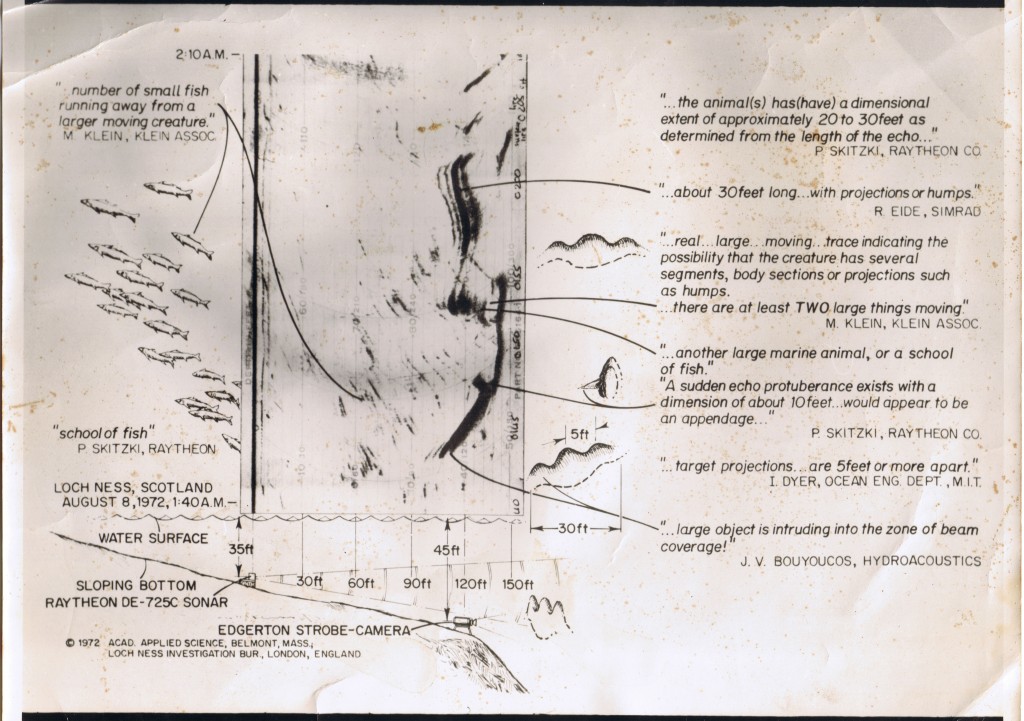 2:10 A.M. –
"...number of small fish
running away from a
larger moving creature."
M. KLEIN, KLEIN ASSOC.
"school of fish"
P. SKITZKI, RAYTHEON
LOCH NESS, SCOTLAND
AUGUST 8, 1972, 1:40 A.M. –
"...the animal(s) has(have) a dimensional
extent of approximately 20 to 30 feet as
determined from the length of the echo..."
P. SKITZKI, RAYTHEON CO.
"...about 30 feet long...with projections or humps."
R. EIDE, SIMRAD
"...real...large...moving...trace indicating the
possibility that the creature has several
segments, body sections or projections such
as humps.
...there are at least TWO large things moving"
M. KLEIN, KLEIN ASSOC.
"...another large marine animal, or a school
of fish."
"A sudden echo protuberance exists with a
dimension of about 10 feet...would appear to be
an appendage..."
P. SKITZKI, RAYTHEON CO.
5ft
"...target projections...are 5 feet or more apart."
I. DYER, OCEAN ENG. DEPT., M.I.T.
30ft
"...large object is intruding into the zone of beam
coverage!"
J. V. BOUYOUCOS, HYDROACOUSTICS
WATER SURFACE
35ft
45ft
SLOPING BOTTOM
30ft 60ft 90ft 120ft 150ft
RAYTHEON DE-725C SONAR
EDGERTON STROBE-CAMERA
© 1972 ACAD. APPLIED SCIENCE, BELMONT, MASS.;
LOCH NESS INVESTIGATION BUR., LONDON, ENGLAND